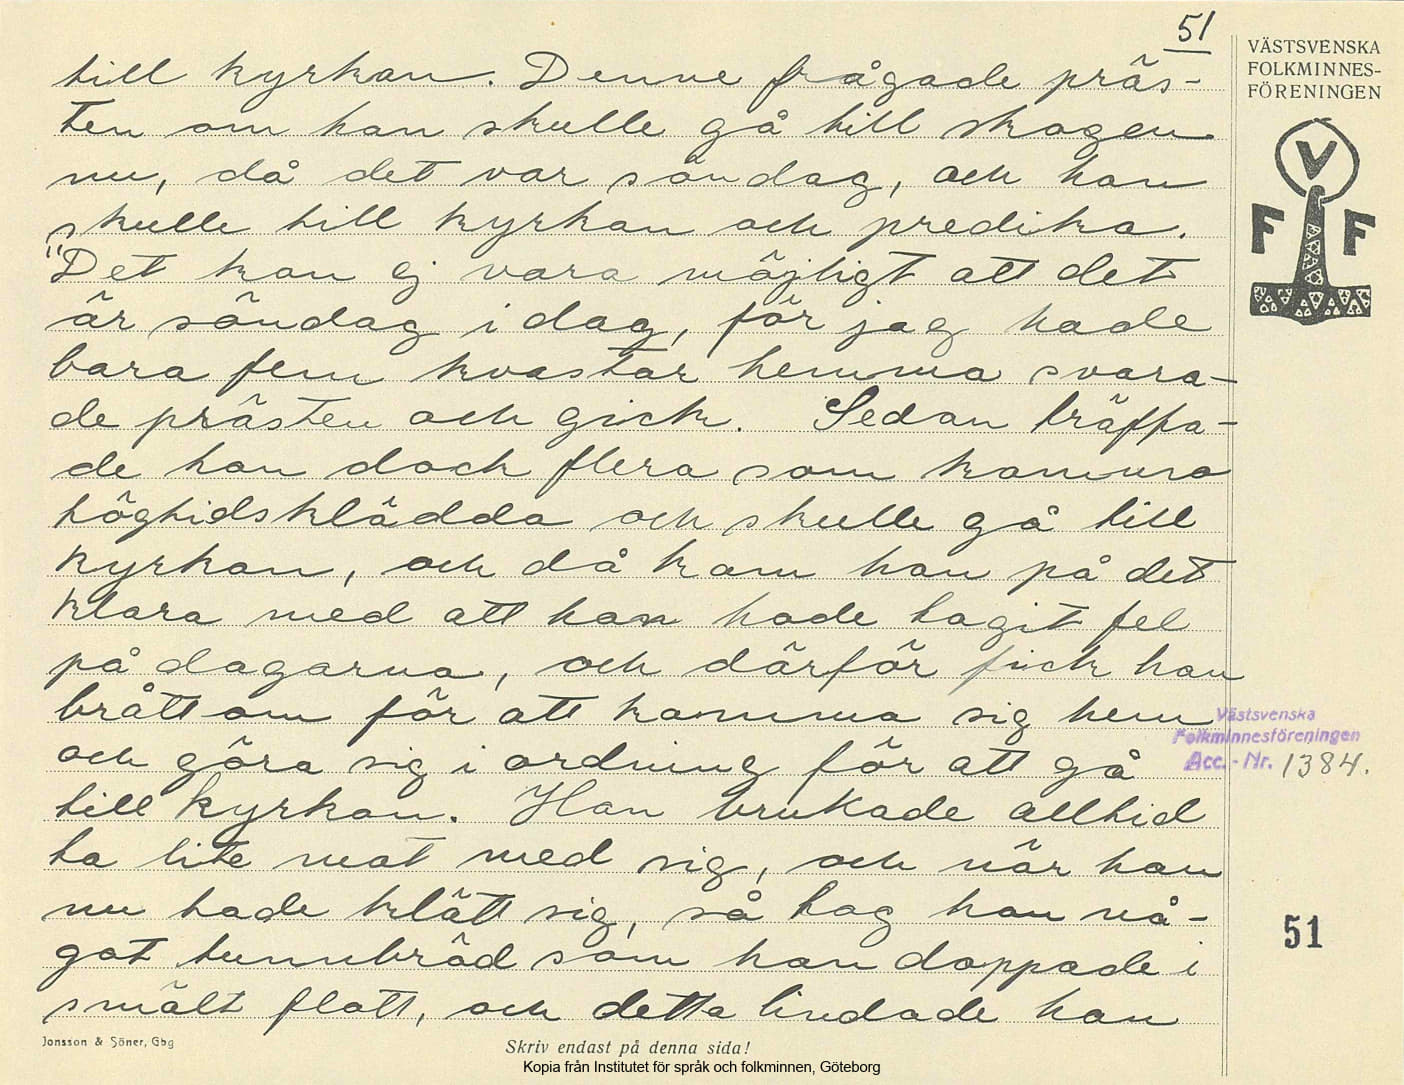 51
VÄSTSVENSKA
FOLKMINNES-
FÖRENINGEN
V
F F
till kyrkan. Denne frågade präs-
ten om han skulle gå till skogen
nu, då det var söndag, och han
skulle till kyrkan och predika.
"Det kan ej vara möjligt att det
är söndag i dag, för jag hade
bara fem kvastar hemma svara-
de prästen och gick. Sedan träffa-
de han dock flera som kommo
högtidsklädda och skulle gå till
kyrkan, och då kom han på det
klara med att han hade tagit fel
på dagarna, och därför fick han
bråttom för att komma sig hem
och göra sig i ordning för att gå
till kyrkan. Han brukade alltid
ta lite mat med sig, och när han
nu hade klätt sig, så tog han nå-
got tunnbröd som han doppade i
smält flott, och detta lindade han
Västsvenska
Folkminnesföreningen
Acc. - Nr. 1384.
51
Jonsson & Söner, Gbg
Skriv endast på denna sida!
Kopia från Institutet för språk och folkminnen, Göteborg